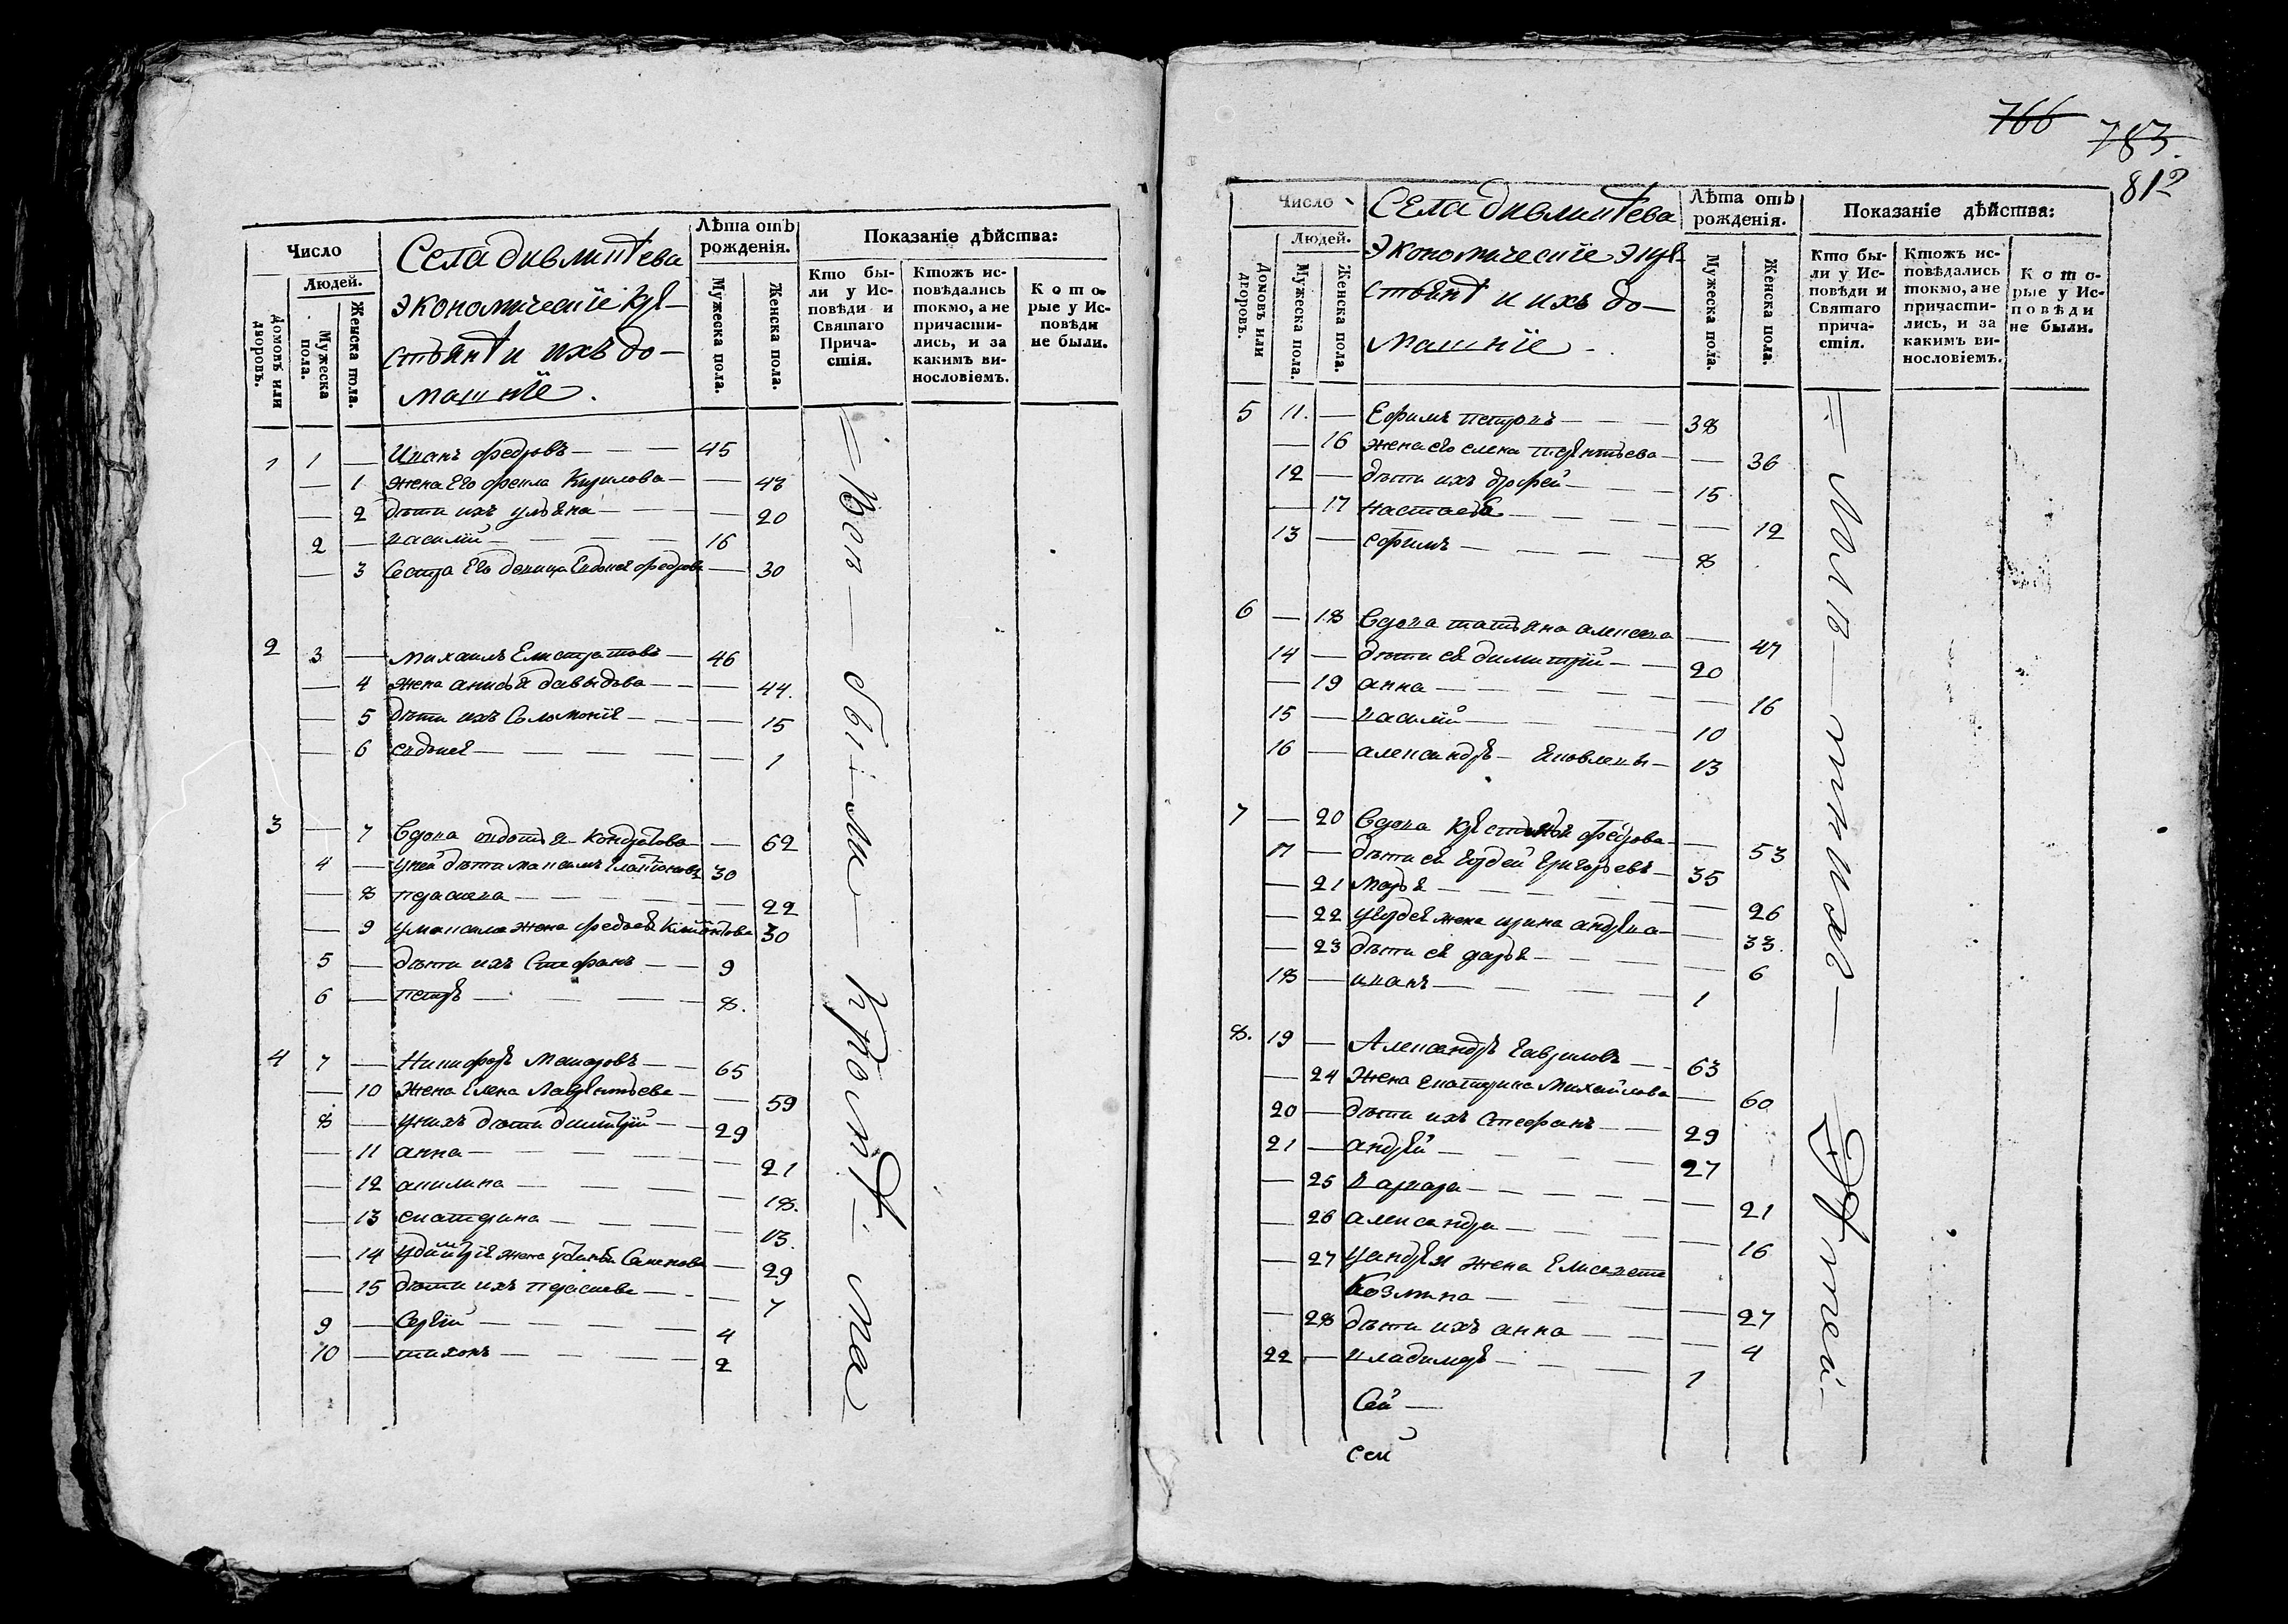 Число
Людей.
Домовъ или дворовъ.
Мужеска пола.
Женска пола.
Села
экономическіе кре-
стьянѣ и ихъ до-
машніе.
Лѣта отъ рожденія.
Мужеска пола.
Женска пола.
Показаніе дѣйства:
Кто бы-
ли у Ис-
повѣди и
Святаго
Прича-
стія.
Ктожъ ис-
повѣдались
токмо, а не
причасти-
лись, и за
какимъ ви-
нословіемъ.
Кото-
рые у Ис-
повѣди
не были.
1 1 — Иванъ Федоровъ — — — 45
— 1 жена Его Кирилова — — 48
— 2 дѣти ихъ ульяна — — — 20
2 — василій — — — 16
— 3 Сестра Его девица Евдокея федорова — 30
2 3 — Михаилъ Елистратовъ — 46
— 4 жена анисья давыдова — — 44.
— 5 дѣти ихъ Соломонія — — — 15
— 6 евдокея — — — — 1
3 — 7 вдова Кондратова — 62
4 — у ней дѣти максимъ 30
— 8 прасковя — — — — 22
— 9 у максима жена федосея 30
5 — дѣти ихъ Стефанъ — — 9
6 — петръ — — — — 8.
4 7 — Никифоръ Макаровъ — — 65
— 10 жена Елена Лаврентьева — — 59
8 — у нихъ дѣти димитрій — — 29
— 11 анна — — — — 21
— 12 акилина — — — — 18.
— 13 екатерина — — — — 13.
— 14 у димитрія жена Семенова — 29
— 15 дѣти ихъ прасковя — — 7
9 — Сергѣй — — — — 4
10 — тихонъ — — — — 2
Всѣ — были — у
766
783.
812
Число
Людей.
Домовъ или дворовъ.
Мужеска пола.
Женска пола.
Села
экономическіе
стьянѣ и ихъ до—
машніе —.
Лѣта отъ рожденія.
Мужеска пола.
Женска пола.
Показаніе дѣйства:
Кто бы-
ли у Ис-
повѣди и
Святаго
прича-
стія.
Ктожъ ис-
повѣдались
токмо, а не
причасти-
лись, и за
какимъ ви-
нословіемъ.
Кото-
рые у Ис-
повѣди
не были.
5 11. — Ефимъ петровъ — — — 38
— 16 жена его елена терентьева — — 36
12 — дѣти ихъ дорофей — — — 15
— 17 настасья — — — — 12
13 — ефимъ — — — — 8
6 — 18 вдова татьяна алексеева — 47
14 — дѣти ея димитрій — — 20
— 19 анна — — — — 16
15 — василій — — — 10
16 — александръ — яковлевы — 13
7 — 20 вдова федорова — — 53
17 — дѣти ея Гордей Григорьевъ — 35
— 21 марья — — — — 26
— 22 у гордея жена ирина андреева — — 33.
— 23 дѣти ея дарья — — — 6
18 — иванъ — — — — 1
8. 19 — Александръ Гавриловъ — — 63
— 24 жена екатерина Михайлова — 60
20 — дѣти ихъ Стефанъ — — 29
21 — андрей — — — — 27
— 25 варвара — — — — 21
— 26 александра — — — 16
— 27 у андрея жена Елисавета
Козмина — — — 27
— 28 дѣти ихъ анна — — — 4
22 — владимеръ — — — 1
Сей —
сей